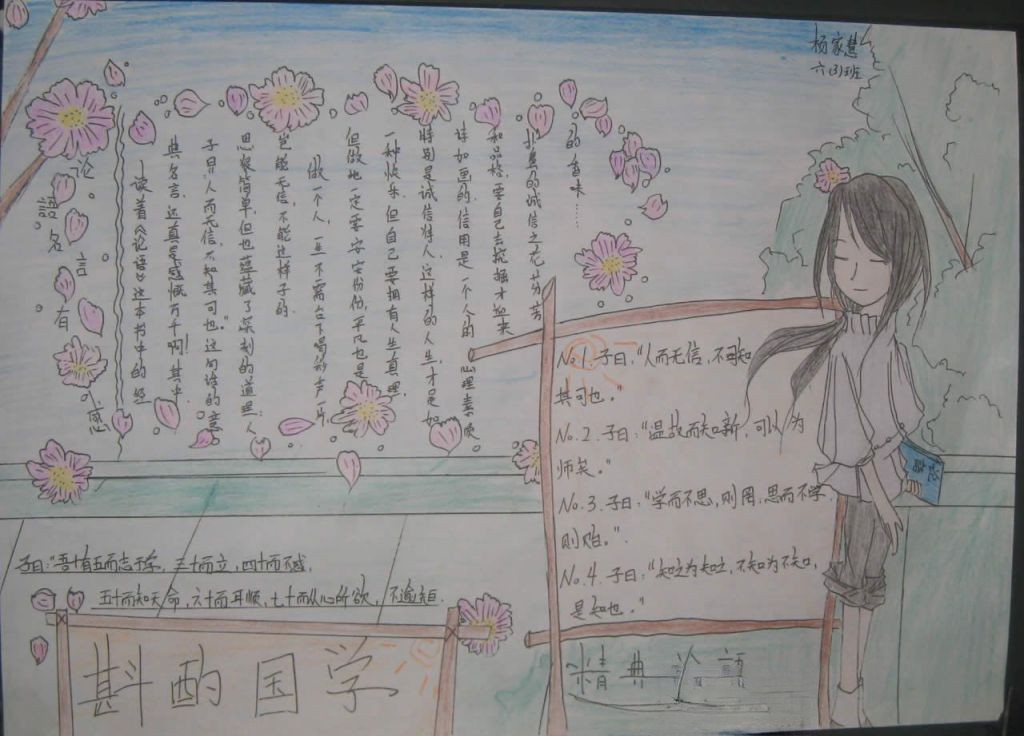 杨家慧
六(3)班
论語名言有感
读着《论语》这本书中的经
典名言,这真是感慨万千啊!其中
子曰"人而无信,不知其可也。"这句话的意
思很简单,但也蕴藏了深刻的道理:人
岂能无信,不能这样子的.
做一个人,一生不需台下喝彩声一片
但做也一定要安安份份,平凡也是
一种快乐.但自己要拥有人生真理,
特别是诚信待人,这样的人生,才是如
诗如画的.信用是一个人的心理素质
和品格,要自己去挖掘才
的诚信之花,芬芳
的香味……
No.1.子曰:"人而无信,不知
其可也。"
No.2.子曰:"温故而知新,可以为
师矣。"
No.3.子曰:"学而不思,则罔,思而不学,
则殆。"
No.4.子曰:"知之为知之,不知为不知,
是知也。"
子曰:"吾十有五而志于学,三十而立,四十而不惑,
五十而知天命,六十而耳顺,七十而从心所欲,不逾矩.
斟酌国学
精典论語
论语